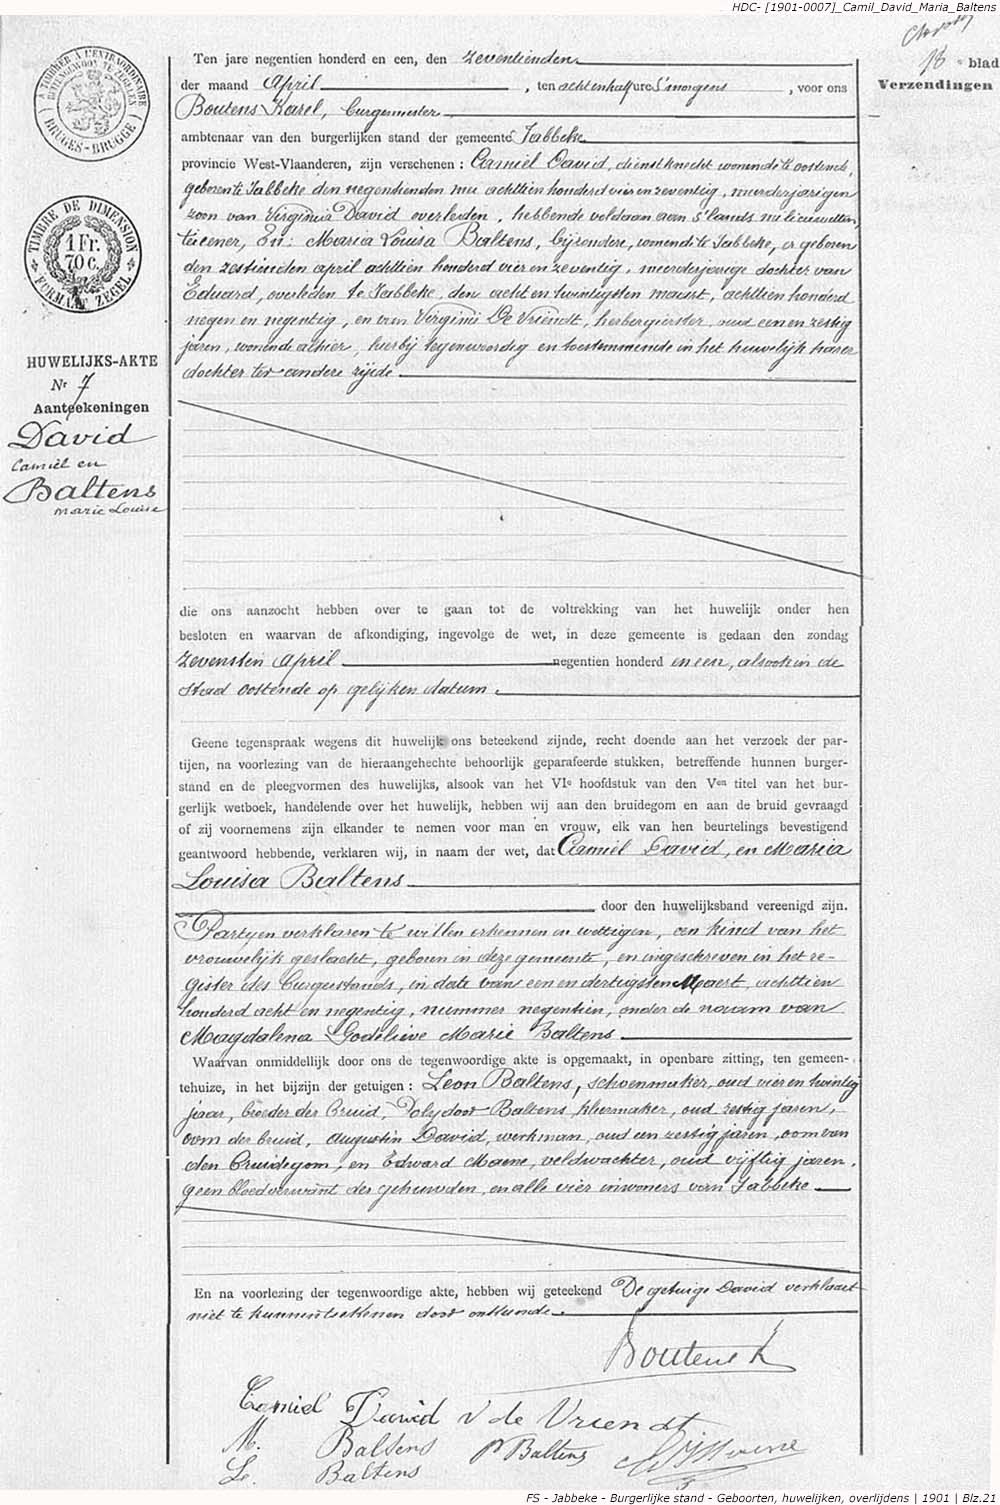 HDC- [1901-0007]_Camil_David_Maria_Baltens
13e blad
Verzendingen
TIMBRE A L'EXTRAORDINAIRE
BUITENGEWOON TE ZEGELEN
BRUGES-BRUGGE
TIMBRE DE DIMENSION
1 Fr.
70 c.
FORMAAT ZEGEL
HUWELIJKS-AKTE
Nr 7
Aanteekeningen
David
Camiel en
Baltens
Marie Louise
Ten jare negentien honderd en een, den zeventienden
der maand April, ten achtenhalf ure 's morgens, voor ons
Boutens Karel, burgemeester
ambtenaar van den burgerlijken stand der gemeente Jabbeke
provincie West-Vlaanderen, zijn verschenen : Camiel David, dienstknecht wonende te oostende,
geboren te Jabbeke den negentienden mei achttien honderd vier en zeventig, meerderjarigen
zoon van Virginia David overleden, hebbende voldaan aan 's lands militiewetten,
ter eener, En: Maria Louisa Baltens, bijzondere, wonende te Jabbeke, er geboren
den zestienden april achttien honderd vier en zeventig, meerderjarige dochter van
Eduard, overleden te Jabbeke, den acht en twintigsten maart, achttien honderd
negen en negentig, en van Virginie De Vriendt, herbergierster, oud een en zestig
jaren, wonende alhier, hierbij tegenwoordig en toestemmende in het huwelijk harer
dochter ter andere zijde.
die ons aanzocht hebben over te gaan tot de voltrekking van het huwelijk onder hen
besloten en waarvan de afkondiging, ingevolge de wet, in deze gemeente is gedaan den zondag
zevensten April negentien honderd en een, alsook in de
stad oostende op gelijken datum.
Geene tegenspraak wegens dit huwelijk ons beteekend zijnde, recht doende aan het verzoek der par-
tijen, na voorlezing van de hieraangehechte behoorlijk geparafeerde stukken, betreffende hunnen burger-
stand en de pleegvormen des huwelijks, alsook van het VIe hoofdstuk van den Ven titel van het bur-
gerlijk wetboek, handelende over het huwelijk, hebben wij aan den bruidegom en aan de bruid gevraagd
of zij voornemens zijn elkander te nemen voor man en vrouw, elk van hen beurtelings bevestigend
geantwoord hebbende, verklaren wij, in naam der wet, dat Camiel David, en Maria
Louisa Baltens
door den huwelijksband vereenigd zijn.
Partyen verklaren te willen erkennen en wettigen, een kind van het
vrouwelijk geslacht, geboren in deze gemeente, en ingeschreven in het re-
gister des burgerstands, in date van een en dertigsten Maert, achttien
honderd acht en negentig, nummer negentien, onder de naam van
Magdalena Godelieve Marie Baltens.
Waarvan onmiddellijk door ons de tegenwoordige akte is opgemaakt, in openbare zitting, ten gemeen-
tehuize, in het bijzijn der getuigen : Leon Baltens, schoenmaker, oud vier en twintig
jaar, broeder der bruid, Polydoor Baltens, kleermaker, oud zestig jaren,
oom der bruid, Augustin David, werkman, oud een zestig jaren, oom van
den bruidegom, en Edward Maene, veldwachter, oud vijftig jaren,
geen bloedverwant der gehuwden, en alle vier inwoners van Jabbeke
En na voorlezing der tegenwoordige akte, hebben wij geteekend De getuige David verklaart
niet te kunnen teekenen door onkunde.
Boutens K
Camiel David V de Vriendt
M. Baltens P Baltens
Le. Baltens
FS - Jabbeke - Burgerlijke stand - Geboorten, huwelijken, overlijdens | 1901 | Blz.21